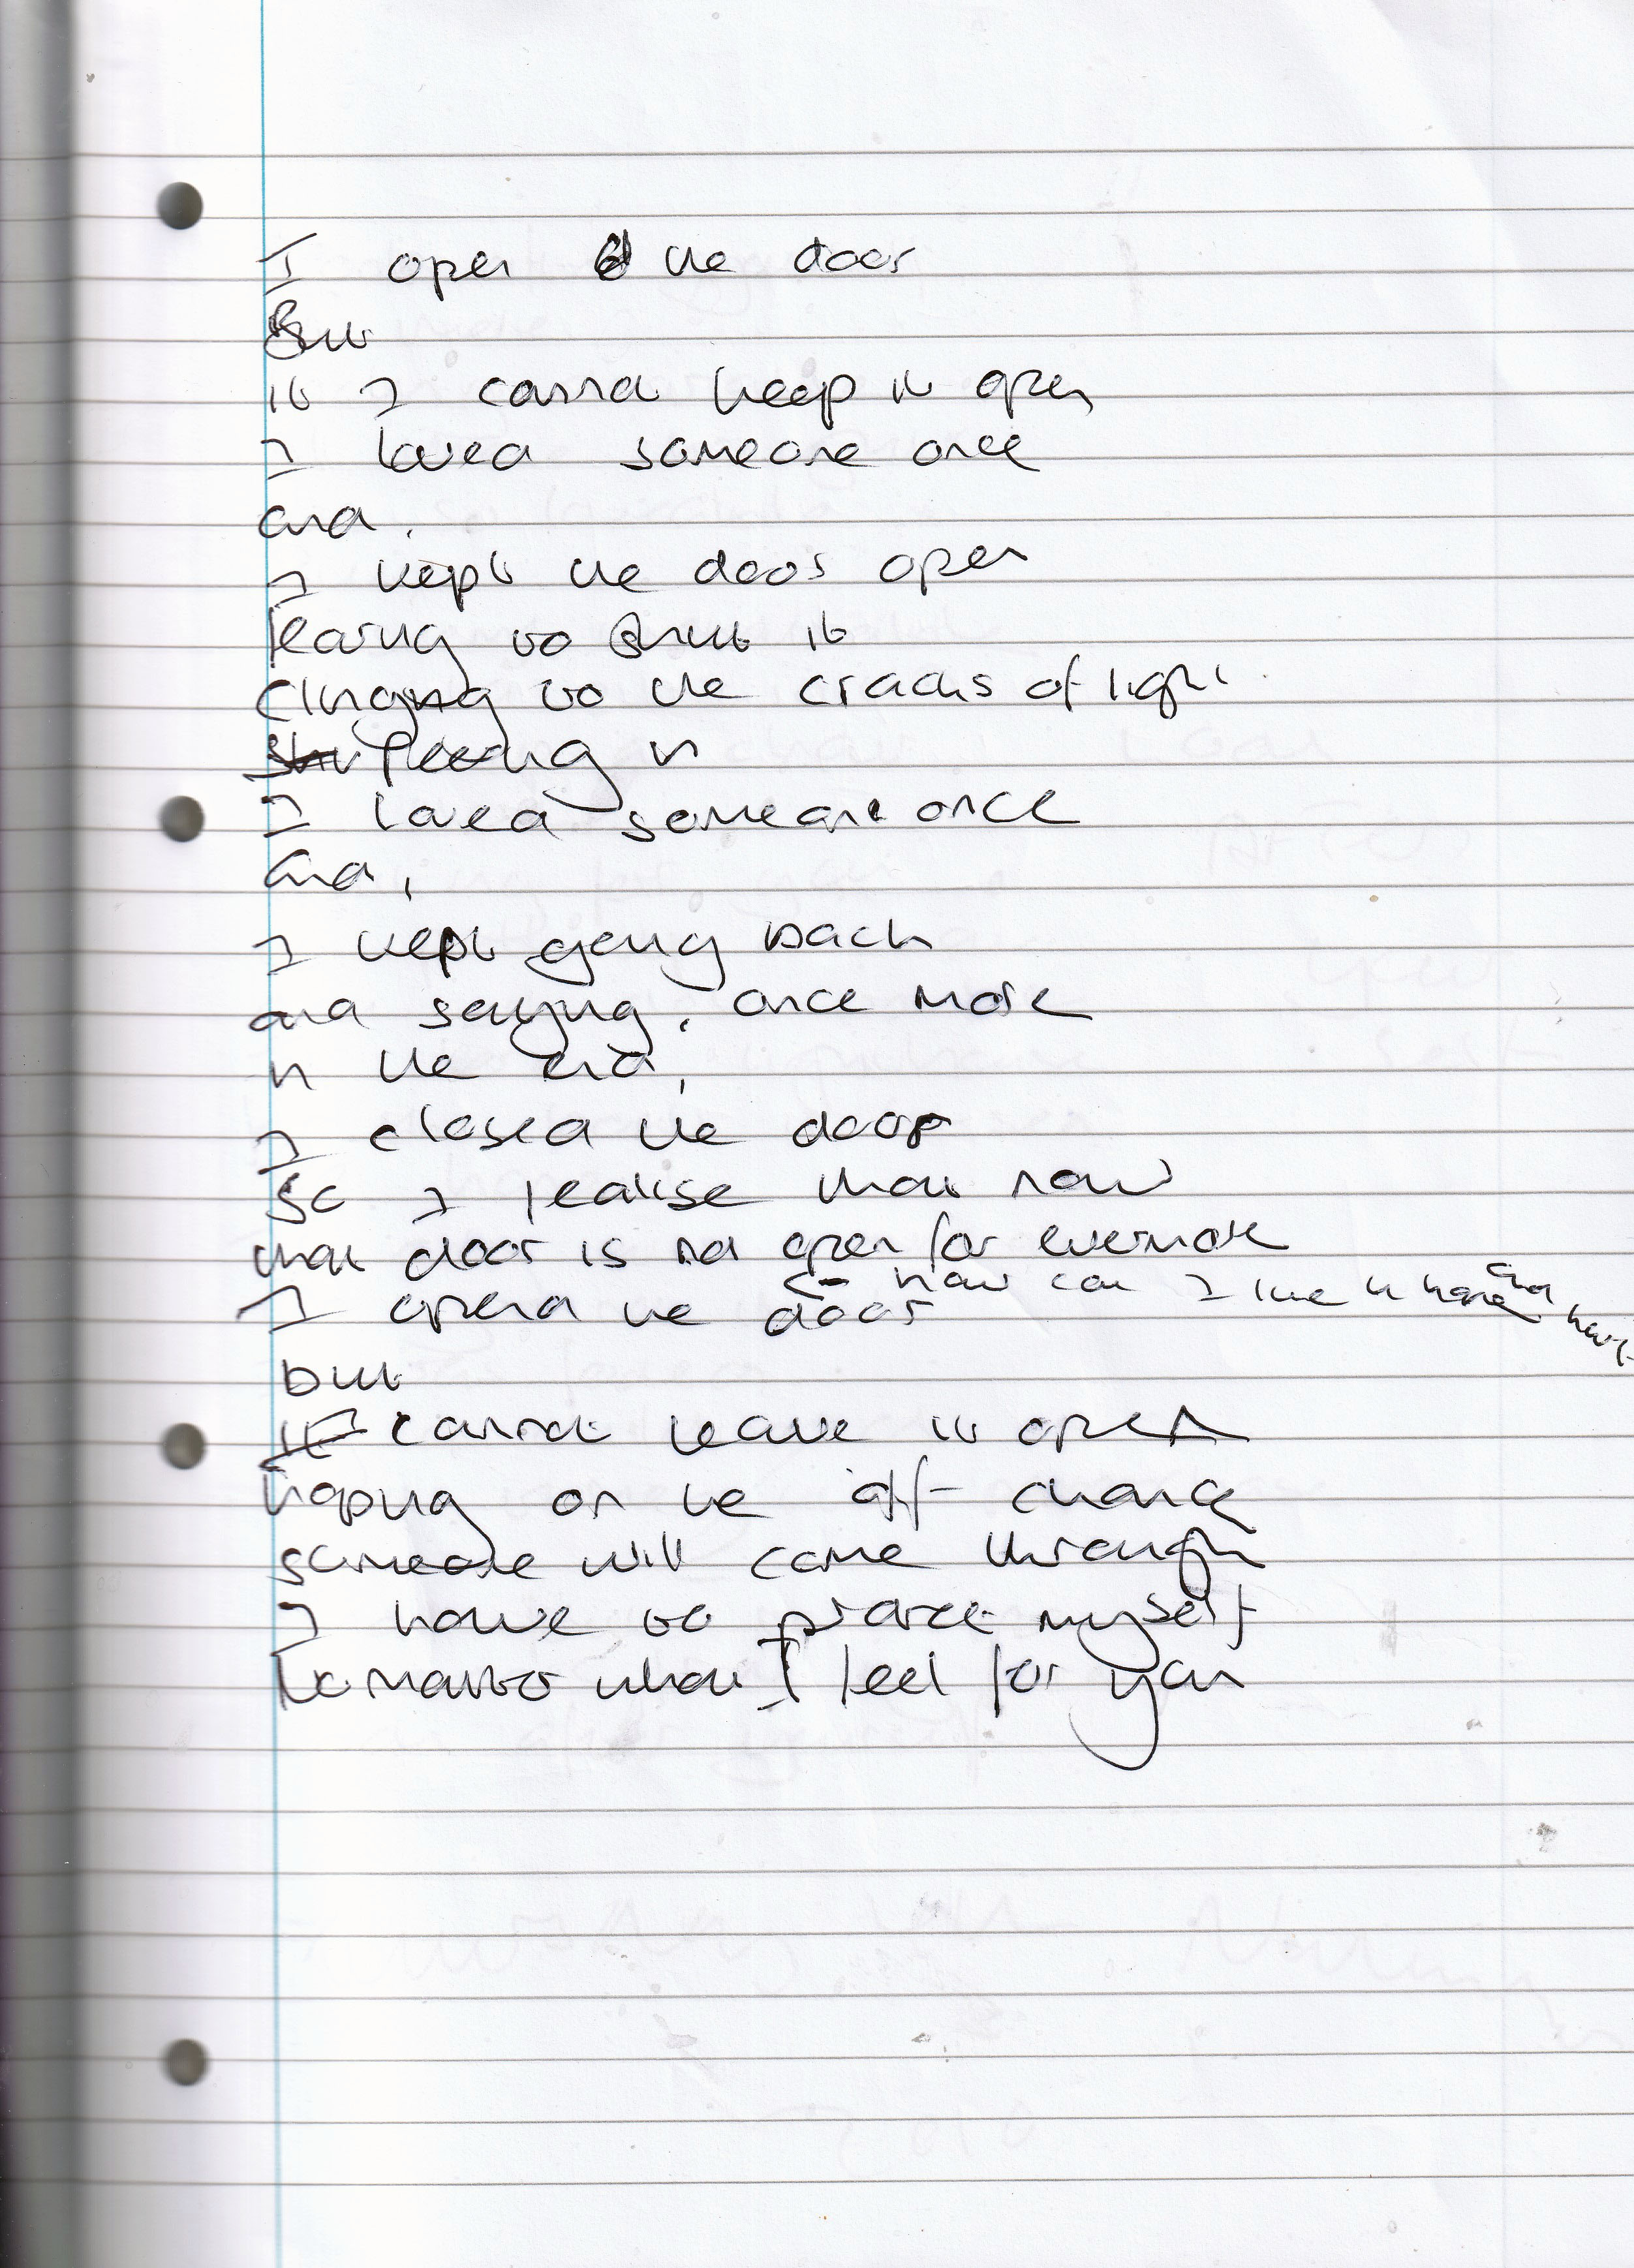 I open the door
But
if I cannot keep it open
I loved someone once
and,
I kept the door open
fearing to shut it
clinging to the cracks of light
fleeting in
I loved someone once
and,
I kept going back
and saying, once more
in the end,
I closed the door
So I realise that now
that door is not open for evermore
← how can I live in hope and
I opend the door
but
cannot leave it open
hoping on the off chance
someone will come through
I have to protect myself
No matter what I feel for you